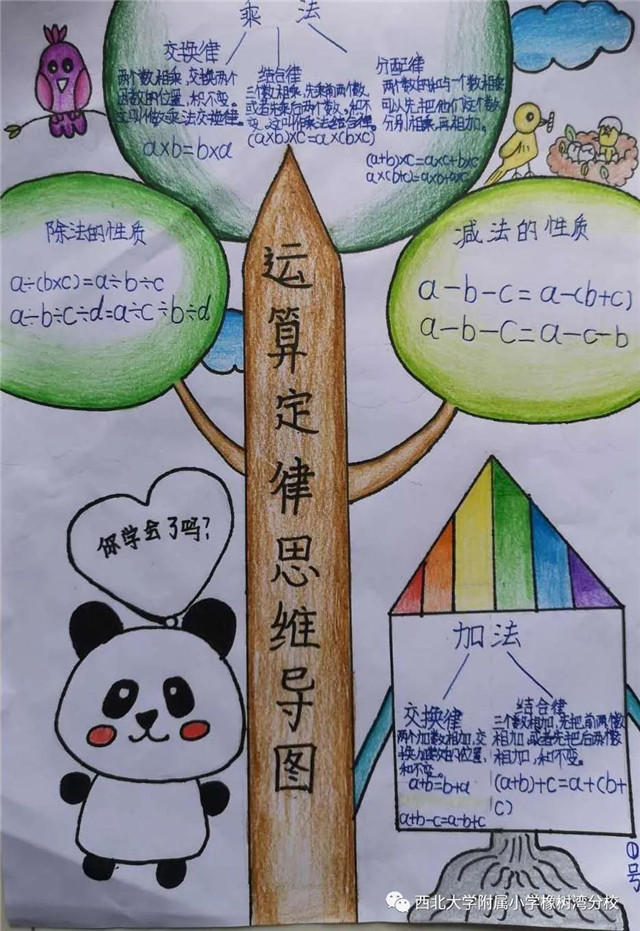 乘法
交换律
两个数相乘,交换两个
因数的位置,积不变。
这叫做乘法交换律。
a×b=b×a
结合律
三个数相乘,先乘前两个数,
或者先乘后两个数,和不
变。这叫作乘法结合律。
(a×b)×c=a×(b×c)
分配律
两个数的和与一个数相乘
可以先把他们与这个数
分别相乘,再相加。
(a+b)×c=a×c+b×c
a×(b+c)=a×b+a×c
除法的性质
a÷(b×c)=a÷b÷c
a÷b÷c÷d=a÷c÷b÷d
减法的性质
a-b-c=a-(b+c)
a-b-c=a-c-b
运算定律思维导图
你学会了吗?
加法
交换律
两个加数相加,交
换加数的位置,
和不变。
a+b=b+a
a+b-c=a-b+c
结合律
三个数相加,先把前两个数
相加,或者先把后两个数
相加,和不变。
(a+b)+c=a+(b+
c)
①号
西北大学附属小学橡树湾分校